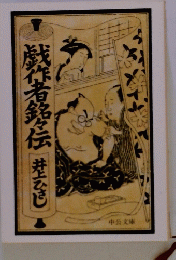 戯作者銘伝
井上ひさし
中公文庫